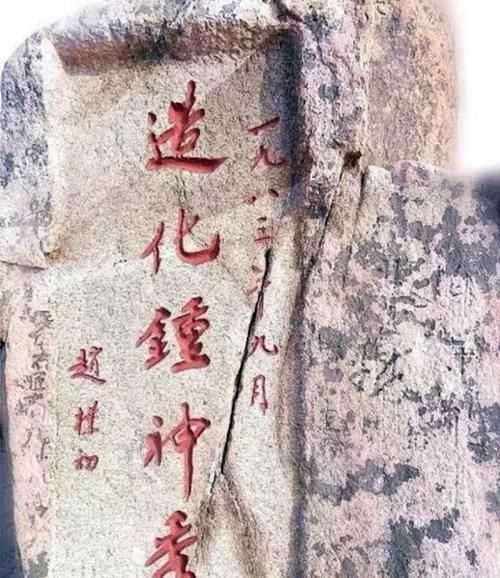 一九八三年九月
造化鍾神秀
趙樸初